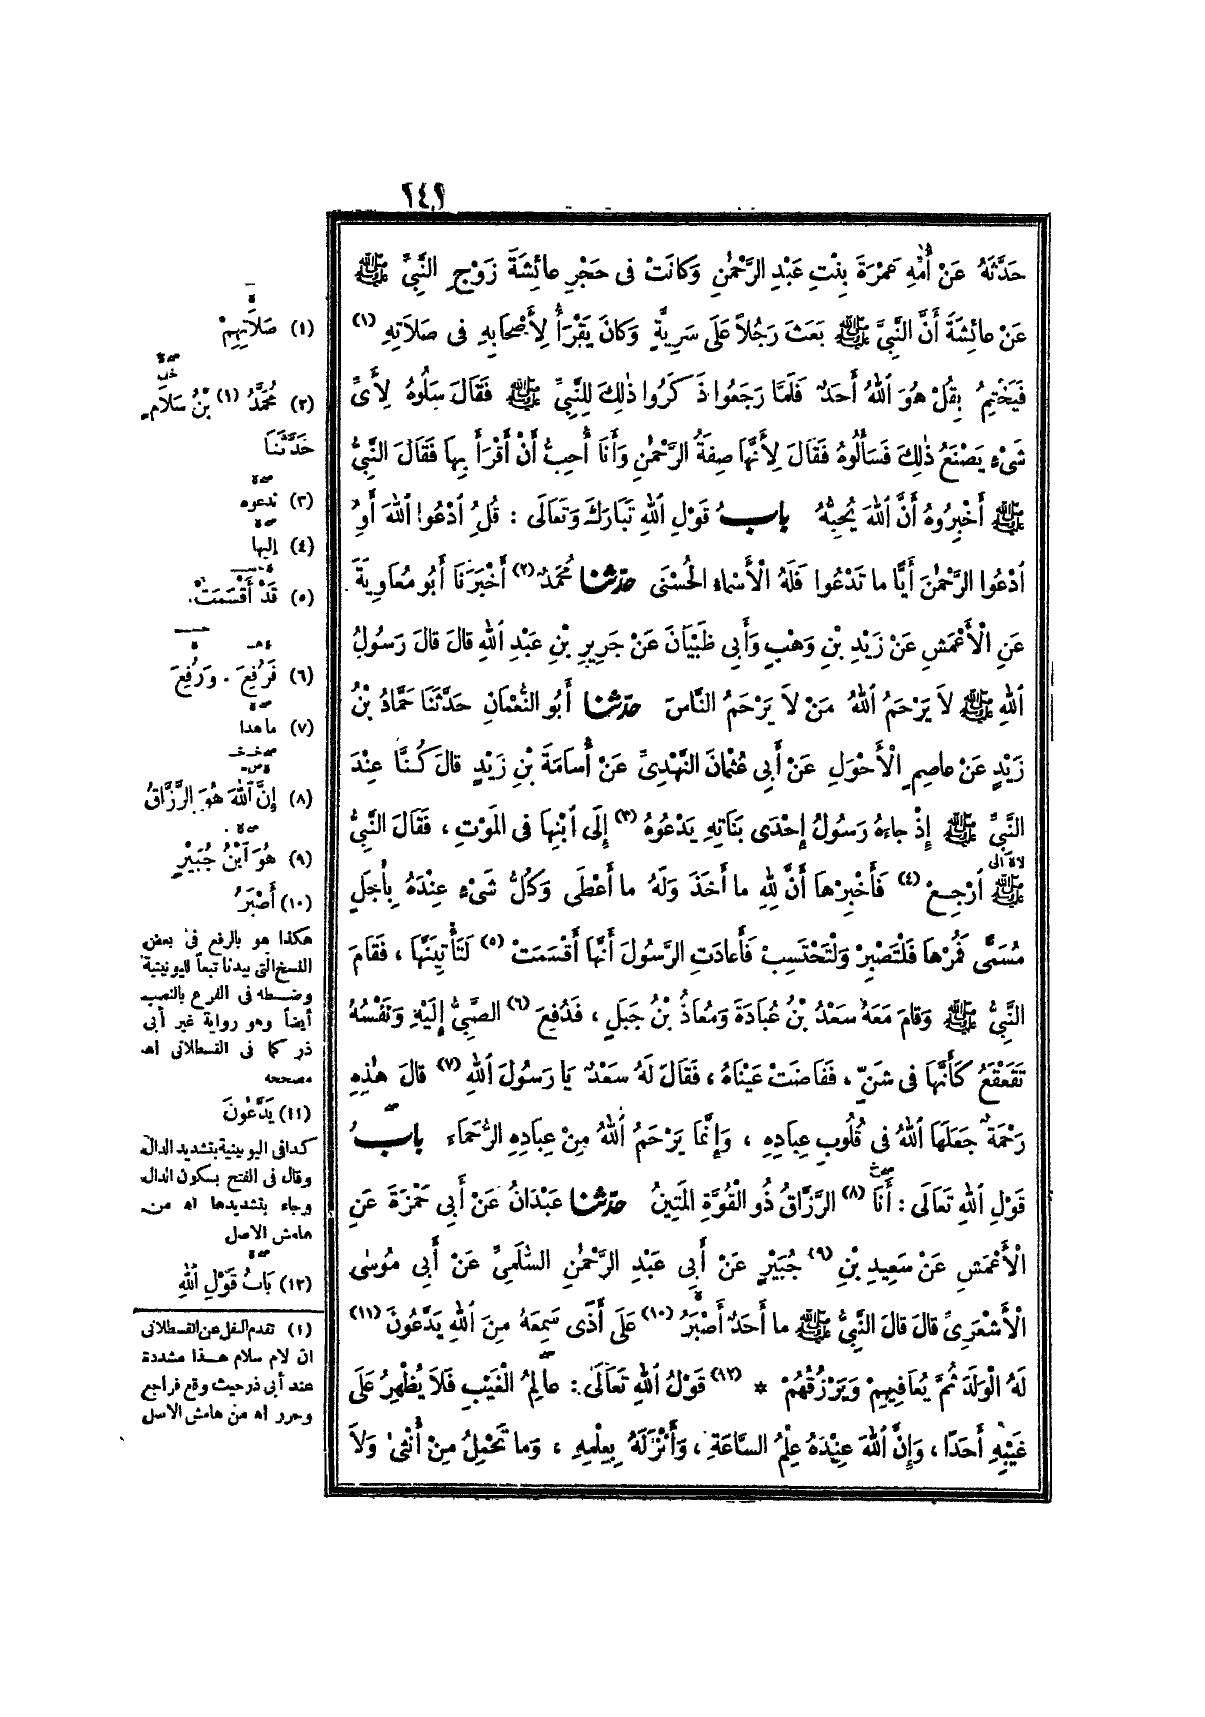 ١٤٢
حَدَّثَهُ عَنْ أُمِّهِ عَمْرَةَ بِنْتِ عَبْدِ الرَّحْمٰنِ وَكَانَتْ فِى حَجْرِ عَائِشَةَ زَوْجِ النَّبِىِّ ﷺ
عَنْ عَائِشَةَ أَنَّ النَّبِىَّ ﷺ بَعَثَ رَجُلاً عَلَى سَرِيَّةٍ وَكَانَ يَقْرَأُ لِأَصْحَابِهِ فِى صَلَاتِهِ (١)
فَيَخْتِمُ بِقُلْ هُوَ اللهُ أَحَدٌ فَلَمَّا رَجَعُوا ذَكَرُوا ذٰلِكَ لِلنَّبِىِّ ﷺ فَقَالَ سَلُوهُ لِأَىِّ
شَىْءٍ يَصْنَعُ ذٰلِكَ فَسَأَلُوهُ فَقَالَ لِأَنَّهَا صِفَةُ الرَّحْمٰنِ وَأَنَا أُحِبُّ أَنْ أَقْرَأَ بِهَا فَقَالَ النَّبِىُّ
ﷺ أَخْبِرُوهُ أَنَّ اللهَ يُحِبُّهُ بابُ قَوْلِ اللهِ تَبَارَكَ وَتَعَالَى : قُلِ ادْعُوا اللهَ أَوِ
ادْعُوا الرَّحْمٰنَ أَيًّا مَا تَدْعُوا فَلَهُ الْأَسْمَاءُ الْحُسْنَى حَدَّثَنَا مُحَمَّدٌ (٢) أَخْبَرَنَا أَبُو مُعَاوِيَةَ
عَنِ الْأَعْمَشِ عَنْ زَيْدِ بْنِ وَهْبٍ وَأَبِى ظَبْيَانَ عَنْ جَرِيرِ بْنِ عَبْدِ اللهِ قَالَ قَالَ رَسُولُ
اللهِ ﷺ لَا يَرْحَمُ اللهُ مَنْ لَا يَرْحَمُ النَّاسَ حَدَّثَنَا أَبُو النُّعْمَانِ حَدَّثَنَا حَمَّادُ بْنُ
زَيْدٍ عَنْ عَاصِمٍ الْأَحْوَلِ عَنْ أَبِى عُثْمَانَ النَّهْدِىِّ عَنْ أُسَامَةَ بْنِ زَيْدٍ قَالَ كُنَّا عِنْدَ
النَّبِىِّ ﷺ إِذْ جَاءَهُ رَسُولُ إِحْدَى بَنَاتِهِ يَدْعُوهُ (٣) إِلَى ابْنِهَا فِى الْمَوْتِ ، فَقَالَ النَّبِىُّ
ﷺ ارْجِعْ (٤) فَأَخْبِرْهَا أَنَّ لِلهِ مَا أَخَذَ وَلَهُ مَا أَعْطَى وَكُلُّ شَىْءٍ عِنْدَهُ بِأَجَلٍ
مُسَمًّى فَمُرْهَا فَلْتَصْبِرْ وَلْتَحْتَسِبْ فَأَعَادَتِ الرَّسُولَ أَنَّهَا أَقْسَمَتْ (٥) لَتَأْتِيَنَّهَا ، فَقَامَ
النَّبِىُّ ﷺ وَقَامَ مَعَهُ سَعْدُ بْنُ عُبَادَةَ وَمُعَاذُ بْنُ جَبَلٍ ، فَدُفِعَ (٦) الصَّبِىُّ إِلَيْهِ وَنَفْسُهُ
تَقَعْقَعُ كَأَنَّهَا فِى شَنٍّ ، فَفَاضَتْ عَيْنَاهُ ، فَقَالَ لَهُ سَعْدٌ يَا رَسُولَ اللهِ (٧) قَالَ هٰذِهِ
رَحْمَةٌ جَعَلَهَا اللهُ فِى قُلُوبِ عِبَادِهِ ، وَإِنَّمَا يَرْحَمُ اللهُ مِنْ عِبَادِهِ الرُّحَمَاءَ بابُ
قَوْلِ اللهِ تَعَالَى : أَنَا (٨) الرَّزَّاقُ ذُو الْقُوَّةِ الْمَتِينُ حَدَّثَنَا عَبْدَانُ عَنْ أَبِى حَمْزَةَ عَنِ
الْأَعْمَشِ عَنْ سَعِيدِ بْنِ (٩) جُبَيْرٍ عَنْ أَبِى عَبْدِ الرَّحْمٰنِ السُّلَمِىِّ عَنْ أَبِى مُوسٰى
الْأَشْعَرِىِّ قَالَ قَالَ النَّبِىُّ ﷺ مَا أَحَدٌ أَصْبَرُ (١٠) عَلَى أَذًى سَمِعَهُ مِنَ اللهِ يَدَّعُونَ (١١)
لَهُ الْوَلَدَ ثُمَّ يُعَافِيهِمْ وَيَرْزُقُهُمْ * (١٢) قَوْلُ اللهِ تَعَالَى : عَالِمُ الْغَيْبِ فَلَا يُظْهِرُ عَلَى
غَيْبِهِ أَحَدًا ، وَإِنَّ اللهَ عِنْدَهُ عِلْمُ السَّاعَةِ ، وَأَنْزَلَهُ بِعِلْمِهِ ، وَمَا تَحْمِلُ مِنْ أُنْثٰى وَلَا
(١) صَلَاتِهِمْ
(٢) مُحَمَّدُ (١) بْنُ سَلَامٍ
حَدَّثَنَا
(٣) تدعوه
(٤) إليها
(٥) قَدْ أَقْسَمَتْ
(٦) فَرُفِعَ . وَرُفِعَ
(٧) ما هذا
(٨) إِنَّ اللهَ هُوَ الرَّزَّاقُ
(٩) هُوَ ابْنُ جُبَيْرٍ
(١٠) أَصْبَرُ
هكذا هو بالرفع فى بعض
النسخ التى بيدنا تبعاً لليونينية
وضبطه فى الفرع بالنصب
أيضاً وهو رواية غير أبى
ذر كما فى القسطلانى اه
مصححه
(١١) يَدَّعُونَ
كذا فى اليونينية بتشديد الدال
وقال فى الفتح بسكون الدال
وجاء بتشديدها اه من
هامش الاصل
(١٢) بَابُ قَوْلِ اللهِ
(١) تقدم النقل عن القسطلانى
ان لام سلام هذا مشددة
عند أبى ذر حيث وقع فراجع
وحرر اه من هامش الاصل